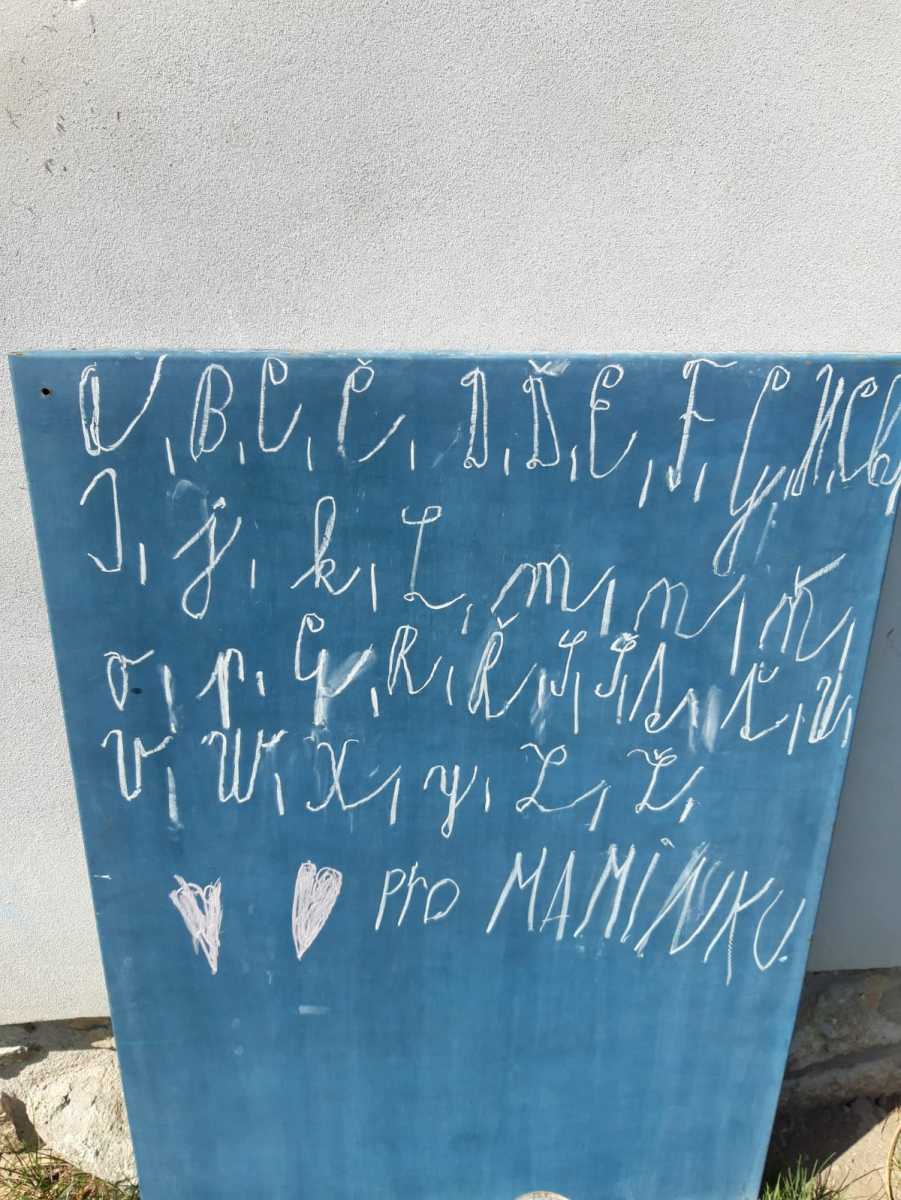 a, B, C, Č, D, Ď, E, F, G, H, Ch,
I, j, k, L, m, n, ň,
o, p, Q, R, Ř, S, Š, T, Ť, U,
V, W, X, y, Z, Ž,
pro MAMINKU.